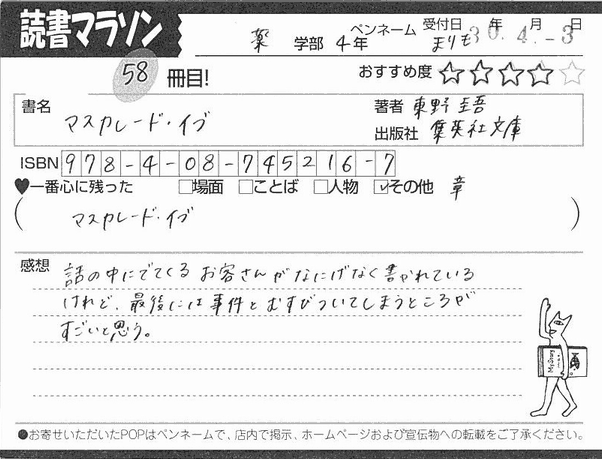 読書マラソン
薬 学部 4年 ペンネーム まりも 受付日 30年 4月 -3日
58 冊目!
おすすめ度 ☆☆☆☆☆
書名 マスカレード・イブ
著者 東野圭吾
出版社 集英社文庫
ISBN 978-4-08-745216-7
♥一番心に残った □場面 □ことば □人物 ☑その他 章
( マスカレード・イブ )
感想 話の中にでてくるお客さんがなにげなく書かれている
けれど、最後には事件とむすびついてしまうところが
すごいと思う。
●お寄せいただいたPOPはペンネームで、店内で掲示、ホームページおよび宣伝物への転載をご了承ください。